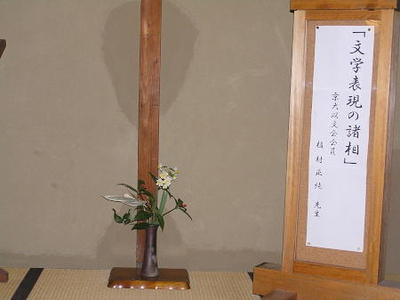 「文学表現の諸相」
京大以文会会員
植村正純 先生